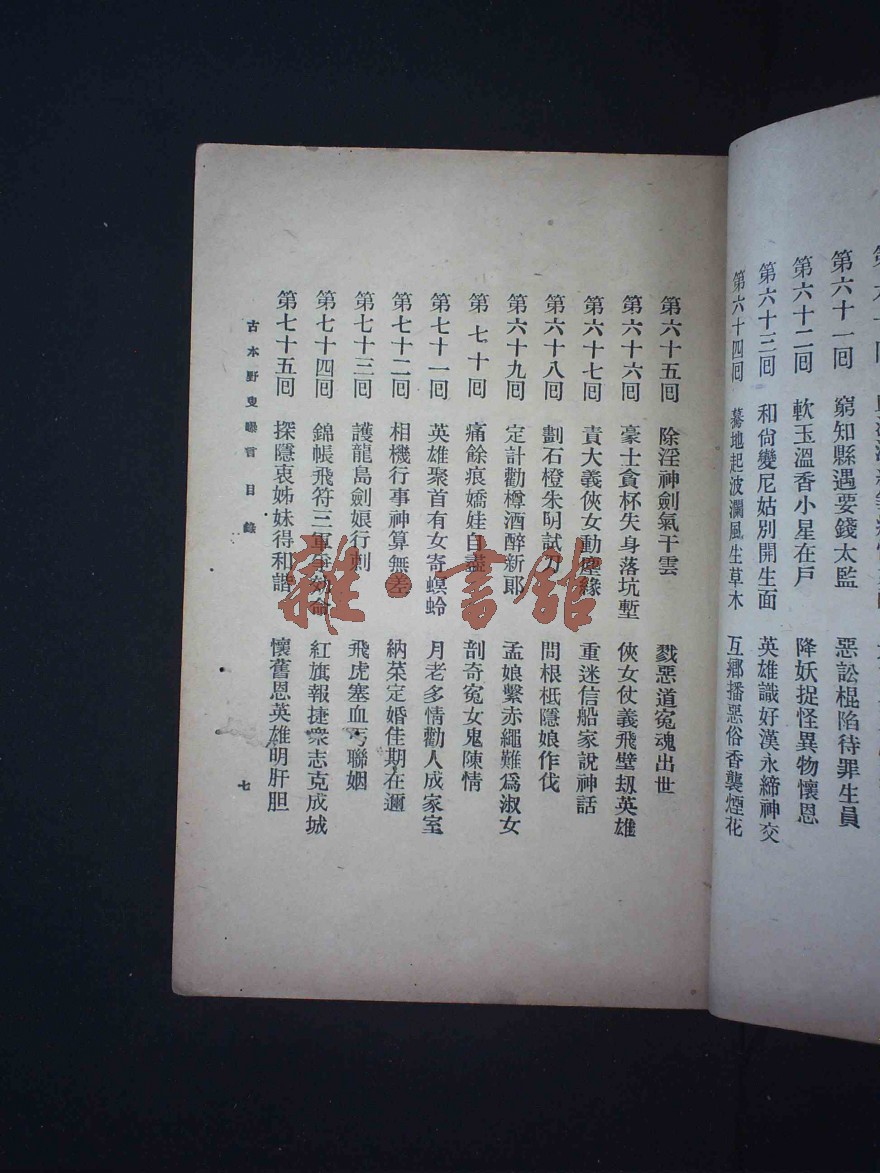 第六十一回　窮知縣遇要錢太監　惡訟棍陷待罪生員
第六十二回　軟玉溫香小星在戶　降妖捉怪異物懷恩
第六十三回　和尙變尼姑別開生面　英雄識好漢永締神交
第六十四回　驀地起波瀾風生草木　互鄕播惡俗香襲煙花
第六十五回　除淫神劍氣干雲　戮惡道冤魂出世
第六十六回　豪士貪杯失身落坑塹　俠女仗義飛壁刼英雄
第六十七回　責大義俠女動塵緣　重迷信船家說神話
第六十八回　劃石橙朱明試刀　問根柢隱娘作伐
第六十九回　定計勸樽酒醉新郞　孟娘繫赤繩難爲淑女
第七十回　痛餘痕嬌娃自盡　剖奇冤女鬼陳情
第七十一回　英雄聚首有女寄螟蛉　月老多情勸人成家室
第七十二回　相機行事神算無差　納菜定婚佳期在邇
第七十三回　護龍島劍娘行刺　飛虎塞血丐聯姻
第七十四回　錦帳飛符三軍爭効命　紅旗報捷衆志克成城
第七十五回　探隱衷姊妹得和諧　懷舊恩英雄明肝胆
古本野叟曝言目錄
七
雜·書館